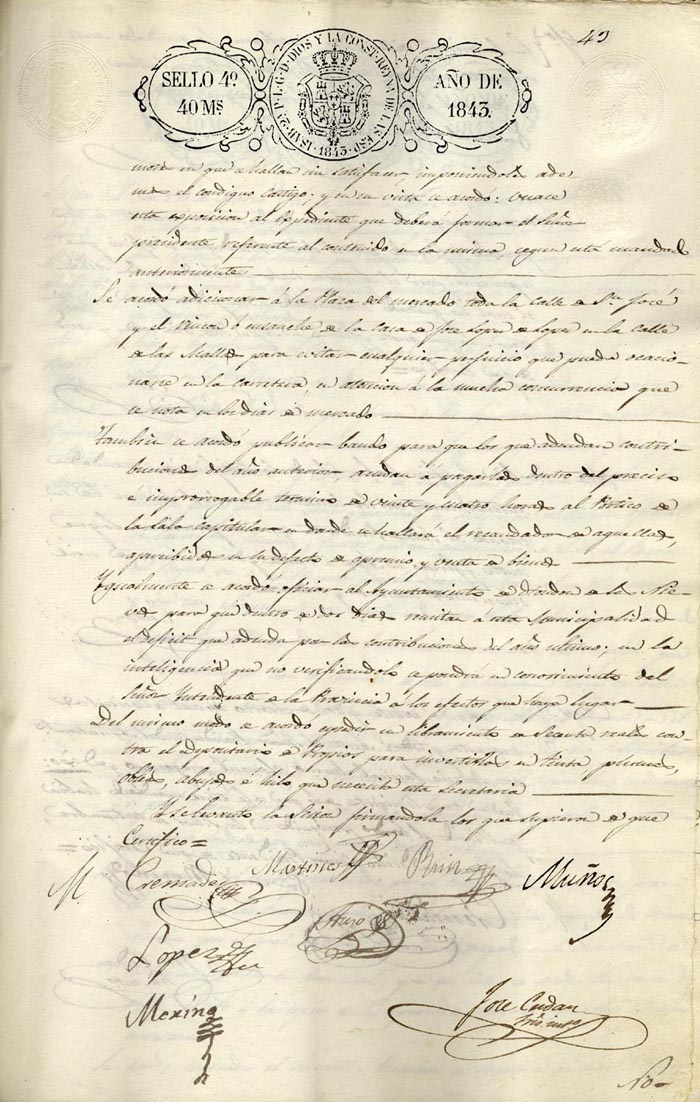 43
SELLO 4º
40 Ms.
ISAB. 2ª P. L. G. D. DIOS Y LA CONST. REYNA DE LAS ESP.
1843
AÑO DE
1843.
en que se hallan sin satisfacer imponiendoles ade
mas el condigno castigo. y en su vista se acordó: 
esta esposicion al Espediente que deberá formar el Señor
presidente, referente al contenido en la misma, segun está mandado
anteriormente
Se acordó adicionar á la Plaza del mercado toda la Calle de Sn. José
y el Rincon ó ensanche de la Casa de Jose Lopez de Lopez en la Calle
de las para evitar cualquier perjuicio que pueda ocacio
narse en la carretera, en atencion á la mucha concurrencia que
se nota en los dias de mercado
Tambien se acordó publicar bando para que los que adeudan contri
buciones del año anterior, acudan á pagarlas dentro del preciso
é improrrogable termino de veinte y cuatro horas al Portico de
la Sala capitular en donde se hallará el recaudador de aquellas,
apercibidos en su defecto de apremio y venta de bienes
Ygualmente se acordó oficiar al Ayuntamiento de Hondon de las Nie
ves para que dentro de dos dias remita á esta Municipalidad
el deficit que adeuda por las contribuciones del año ultimo; en la
inteligencia que no verificandolo se pondrá en conocimiento del
Señor Yntendente de la Provincia á los efectos que haya lugar
Del mismo modo se acordó espedir un libramiento de Secenta reales con
tra el Depositario de Propios para invertirlos en tinta plumas,
obleas, é hilo que necesita esta Secretaria
Y se levantó la Sesion firmandola los que supieron de que
Certifico=
M Cremades Martinez Muñoz
Lopez
Merino
Jose Cerdan
Srio. into.
No-